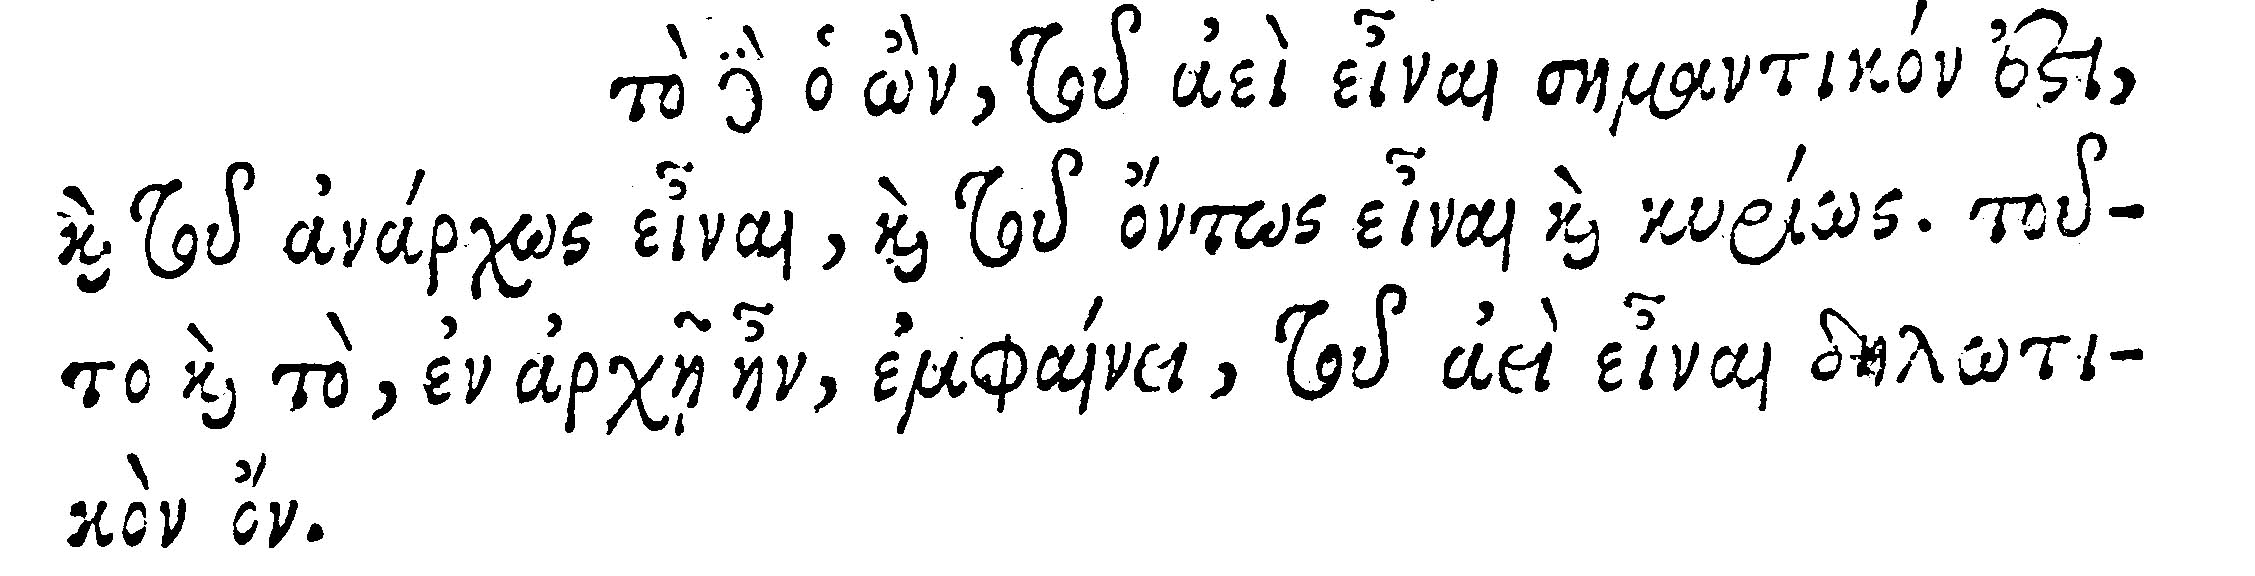 τὸ γὰρ ὁ ὢν, τοῦ ἀεὶ εἶναι σημαντικόν ἐστι,
καὶ τοῦ ἀνάρχως εἶναι, καὶ τοῦ ὄντως εἶναι καὶ κυρίως. τοῦ-
το καὶ τὸ, ἐν ἀρχῇ ἦν, ἐμφαίνει, τοῦ ἀεὶ εἶναι δηλωτι-
κὸν ὄν.